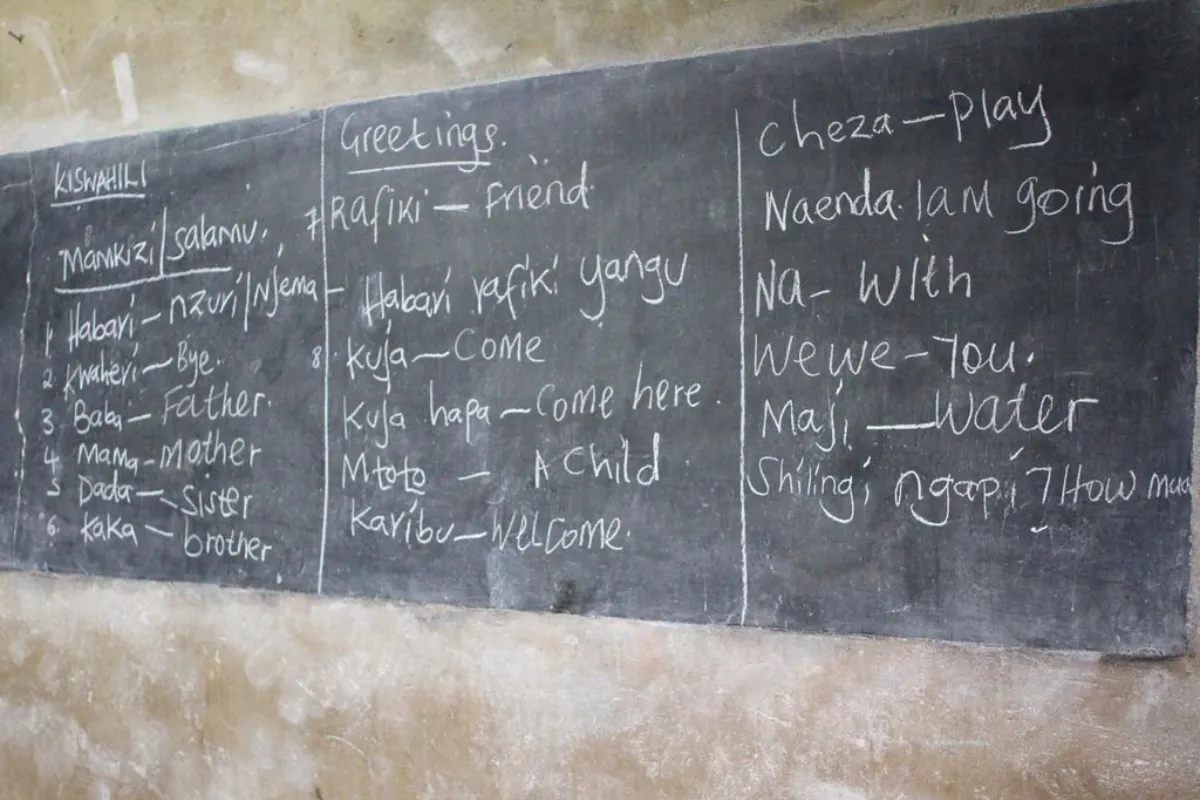 KISWAHILI
Mamkizi/salamu.
1 Habari - nzuri/Njema -
2. Kwaheri - Bye.
3 Baba - Father.
4 Mama - mother
5 Dada - Sister
6. Kaka - brother
Greetings.
7 Rafiki - Friend
Habari rafiki yangu
8. Kuja - Come
Kuja hapa - Come here.
Mtoto - A child
Karibu - Welcome.
Cheza - Play
Naenda. I am going
Na - With
Wewe - You.
Maji - Water
Shilingi ngapi? How much